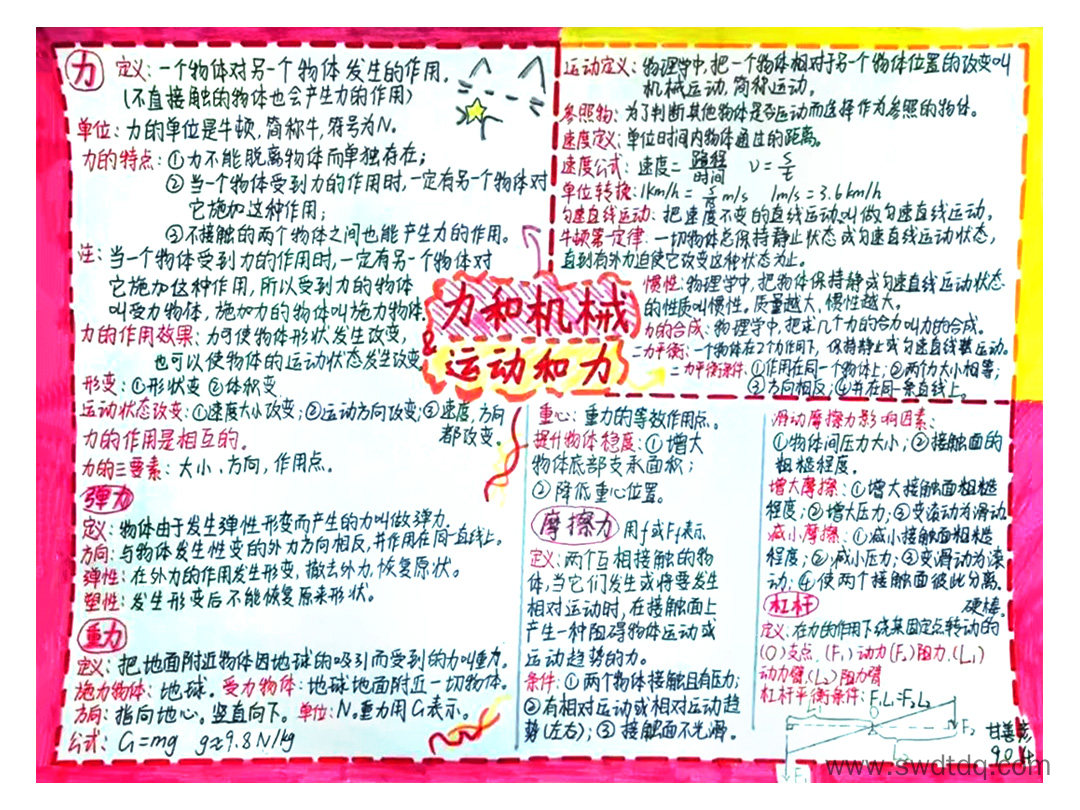 力 定义：一个物体对另一个物体发生的作用。
(不直接触的物体也会产生力的作用)
单位：力的单位是牛顿，简称牛，符号为N。
力的特点：①力不能脱离物体而单独存在；
②当一个物体受到力的作用时，一定有另一个物体对
它施加这种作用；
③不接触的两个物体之间也能产生力的作用。
注：当一个物体受到力的作用时，一定有另一个物体对
它施加这种作用，所以受到力的物体
叫受力物体，施加力的物体叫施力物体
力的作用效果：力可使物体形状发生改变，
也可以使物体的运动状态发生改变
形变：①形状变 ②体积变
运动状态改变：①速度大小改变；②运动方向改变；③速度，方向
都改变。
力的作用是相互的。
力的三要素：大小、方向，作用点。
弹力
定义：物体由于发生弹性形变而产生的力叫做弹力。
方向：与物体发生性变的外力方向相反，并作用在同一直线上。
弹性：在外力的作用发生形变，撤去外力，恢复原状。
塑性：发生形变后不能恢复原来形状。
重力
定义：把地面附近物体因地球的吸引而受到的力叫重力。
施力物体：地球。受力物体：地球地面附近一切物体。
方向：指向地心。竖直向下。单位：N。重力用G表示。
公式：G=mg g≈9.8N/kg
力和机械
&
运动和力
运动定义：物理学中，把一个物体相对于另一个物体位置的改变叫
机械运动，简称运动。
参照物：为了判断其他物体是否运动而选择作为参照的物体。
速度定义：单位时间内物体通过的距离。
速度公式：速度=路程/时间 v=s/t
单位转换：1km/h= m/s 1m/s=3.6km/h
匀速直线运动：把速度不变的直线运动叫做匀速直线运动，
牛顿第一定律：一切物体总保持静止状态或匀速直线运动状态，
直到有外力迫使它改变这种状态为止。
惯性：物理学中，把物体保持静或匀速直线运动状态
的性质叫惯性。质量越大，惯性越大。
力的合成：物理学中，把求几个力的合力叫力的合成。
二力平衡：一个物体在2个力作用下，保持静止或匀速直线运动。
二力平衡条件：①作用在同一个物体上；②两个力大小相等；
③方向相反；④并在同一条直线上。
重心：重力的等效作用点。
提升物体稳度：①增大
物体底部支承面积；
②降低重心位置。
摩擦力 用f或Ff表示
定义：两个互相接触的物
体，当它们发生或将要发生
相对运动时，在接触面上
产生一种阻碍物体运动或
运动趋势的力。
条件：①两个物体接触且有压力；
②有相对运动或相对运动趋
势(左右)；③接触面不光滑。
滑动摩擦力影响因素：
①物体间压力大小；②接触面的
粗糙程度。
增大摩擦：①增大接触面粗糙
程度；②增大压力；③变滚动为滑动
减小摩擦：①减小接触面粗糙
程度；②减小压力；③变滑动为滚
动；④使两个接触面彼此分离。
杠杆 硬棒。
定义：在力的作用下绕某固定点转动的
(O)支点，(F₁)动力(F₂)阻力，(L₁)
动力臂，(L₂)阻力臂
杠杆平衡条件：F₁L₁=F₂L₂
F₂
F₁
www.swdtdq.com